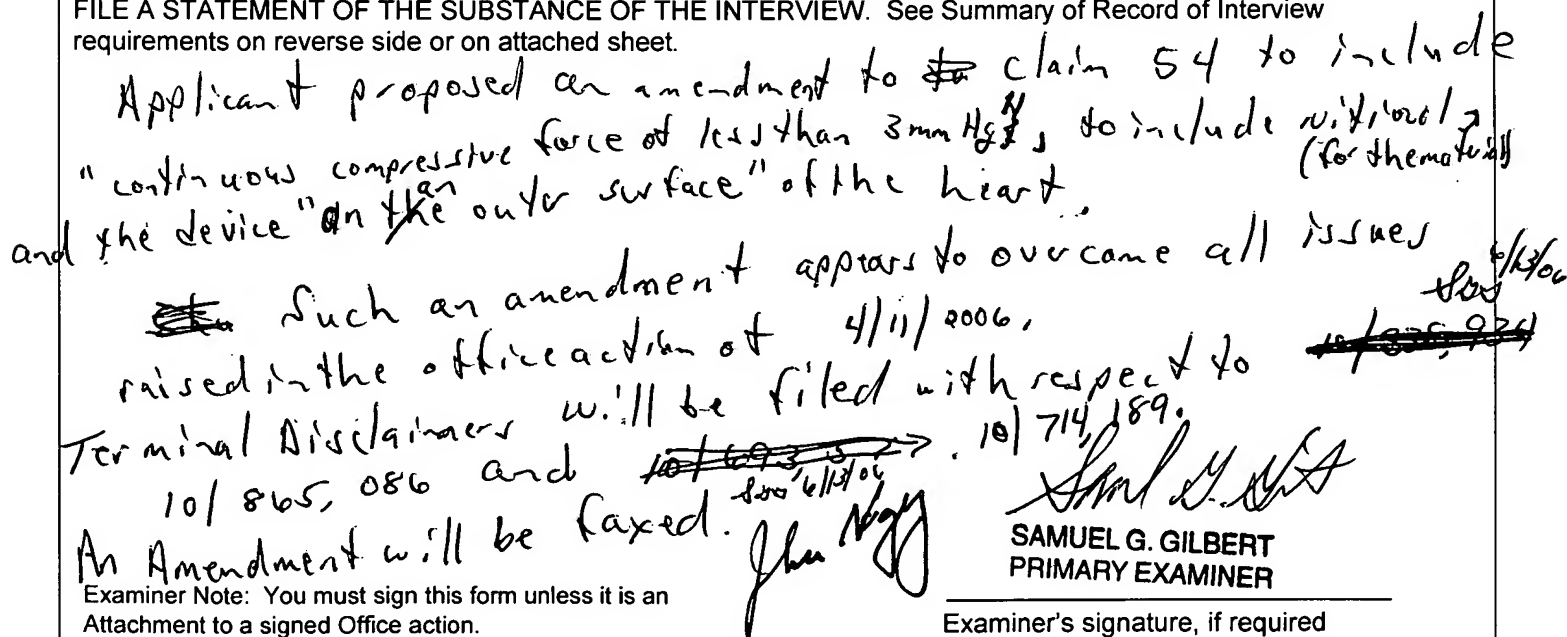 FILE A STATEMENT OF THE SUBSTANCE OF THE INTERVIEW. See Summary of Record of Interview
requirements on reverse side or on attached sheet.
Applicant proposed an amendment to claim 54 to include
"continuous compressive force of less than 3mm Hg", to include nitinol
(for the material)
and the device "on an outer surface" of the heart.
Such an amendment appears to overcome all issues
6/13/06
raised in the office action of 4/11/2006.
Terminal Disclaimers will be filed with respect to
10/865,086 and 10/714,189.
6/13/06
An Amendment will be faxed.
SAMUEL G. GILBERT
PRIMARY EXAMINER
Examiner Note: You must sign this form unless it is an
Attachment to a signed Office action.
Examiner's signature, if required